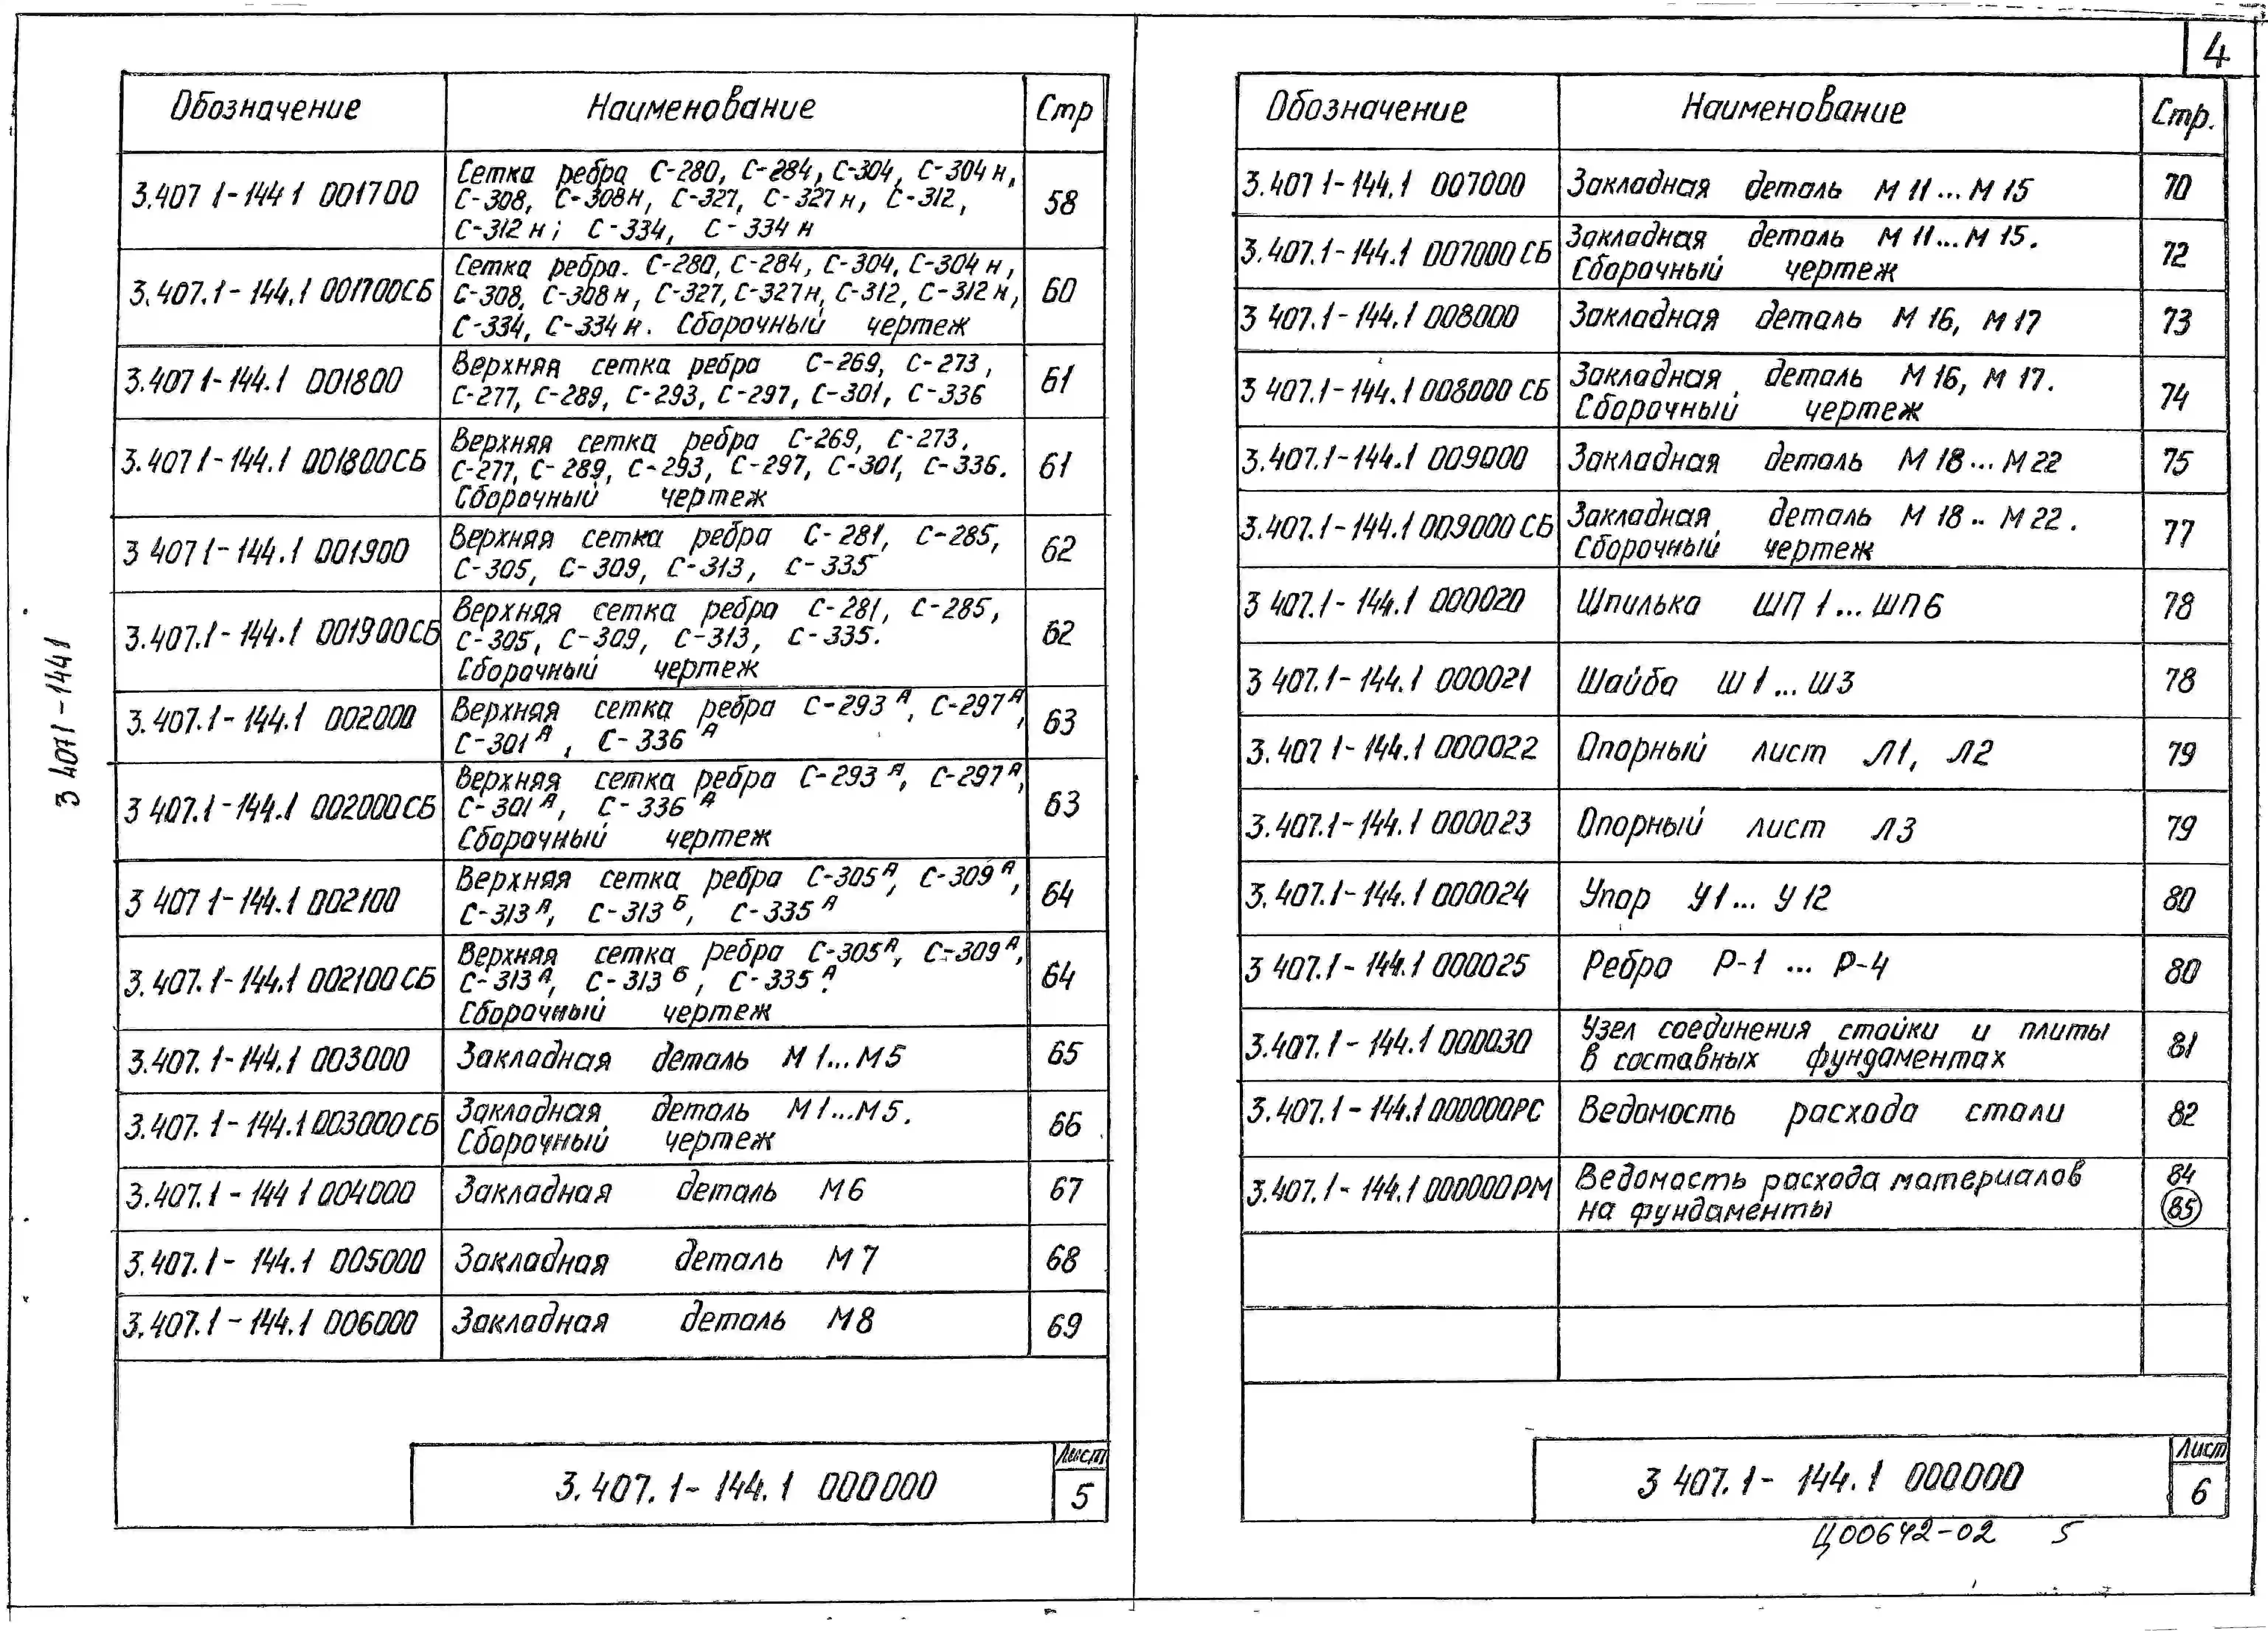 4
3 407 1-144 1
Обозначение Наименование Стр
3.407 1-144 1 001700 Сетка ребра С-280, С-284, С-304, С-304н,
С-308, С-308н, С-327, С-327н, С-312, 58
С-312н; С-334, С-334н
3.407.1-144.1 001700СБ Сетка ребра. С-280, С-284, С-304, С-304н,
С-308, С-308н, С-327, С-327н, С-312, С-312н, 60
С-334, С-334н. Сборочный чертеж
3.407 1-144.1 001800 Верхняя сетка ребра С-269, С-273, 61
С-277, С-289, С-293, С-297, С-301, С-336
3.407 1-144.1 001800СБ Верхняя сетка ребра С-269, С-273.
С-277, С-289, С-293, С-297, С-301, С-336. 61
Сборочный чертеж
3 407 1-144.1 001900 Верхняя сетка ребра С-281, С-285, 62
С-305, С-309, С-313, С-335
3.407.1-144.1 001900СБ Верхняя сетка ребра С-281, С-285,
С-305, С-309, С-313, С-335. 62
Сборочный чертеж
3.407.1-144.1 002000 Верхняя сетка ребра С-293А, С-297А, 63
С-301А, С-336А
3 407.1-144.1 002000СБ Верхняя сетка ребра С-293А, С-297А,
С-301А, С-336А 63
Сборочный чертеж
3 407 1-144.1 002100 Верхняя сетка ребра С-305А, С-309А, 64
С-313А, С-313Б, С-335А
3.407.1-144.1 002100СБ Верхняя сетка ребра С-305А, С-309А,
С-313А, С-313Б, С-335А. 64
Сборочный чертеж
3.407.1-144.1 003000 Закладная деталь М1...М5 65
3.407.1-144.1 003000СБ Закладная деталь М1...М5. 66
Сборочный чертеж
3.407.1-144 1 004000 Закладная деталь М6 67
3.407.1-144.1 005000 Закладная деталь М7 68
3.407.1-144.1 006000 Закладная деталь М8 69
Лист
3.407.1-144.1 000000 5
Обозначение Наименование Стр.
3.407 1-144.1 007000 Закладная деталь М11...М15 70
3.407.1-144.1 007000СБ Закладная деталь М11...М15. 72
Сборочный чертеж
3 407.1-144.1 008000 Закладная деталь М16, М17 73
3 407.1-144.1 008000 СБ Закладная деталь М16, М17. 74
Сборочный чертеж
3.407.1-144.1 009000 Закладная деталь М18...М22 75
3.407.1-144.1 009000 СБ Закладная деталь М18..М22. 77
Сборочный чертеж
3 407.1-144.1 000020 Шпилька ШП1...ШП6 78
3 407.1-144.1 000021 Шайба Ш1...Ш3 78
3.407 1-144.1 000022 Опорный лист Л1, Л2 79
3.407.1-144.1 000023 Опорный лист Л3 79
3.407.1-144.1 000024 Упор У1...У12 80
3 407.1-144.1 000025 Ребро Р-1 ... Р-4 80
3.407.1-144.1 000030 Узел соединения стойки и плиты 81
в составных фундаментах
3.407.1-144.1 000000РС Ведомость расхода стали 82
3.407.1-144.1 000000РМ Ведомость расхода материалов 84
на фундаменты 85
Лист
3 407.1-144.1 000000 6
Ц00642-02 5